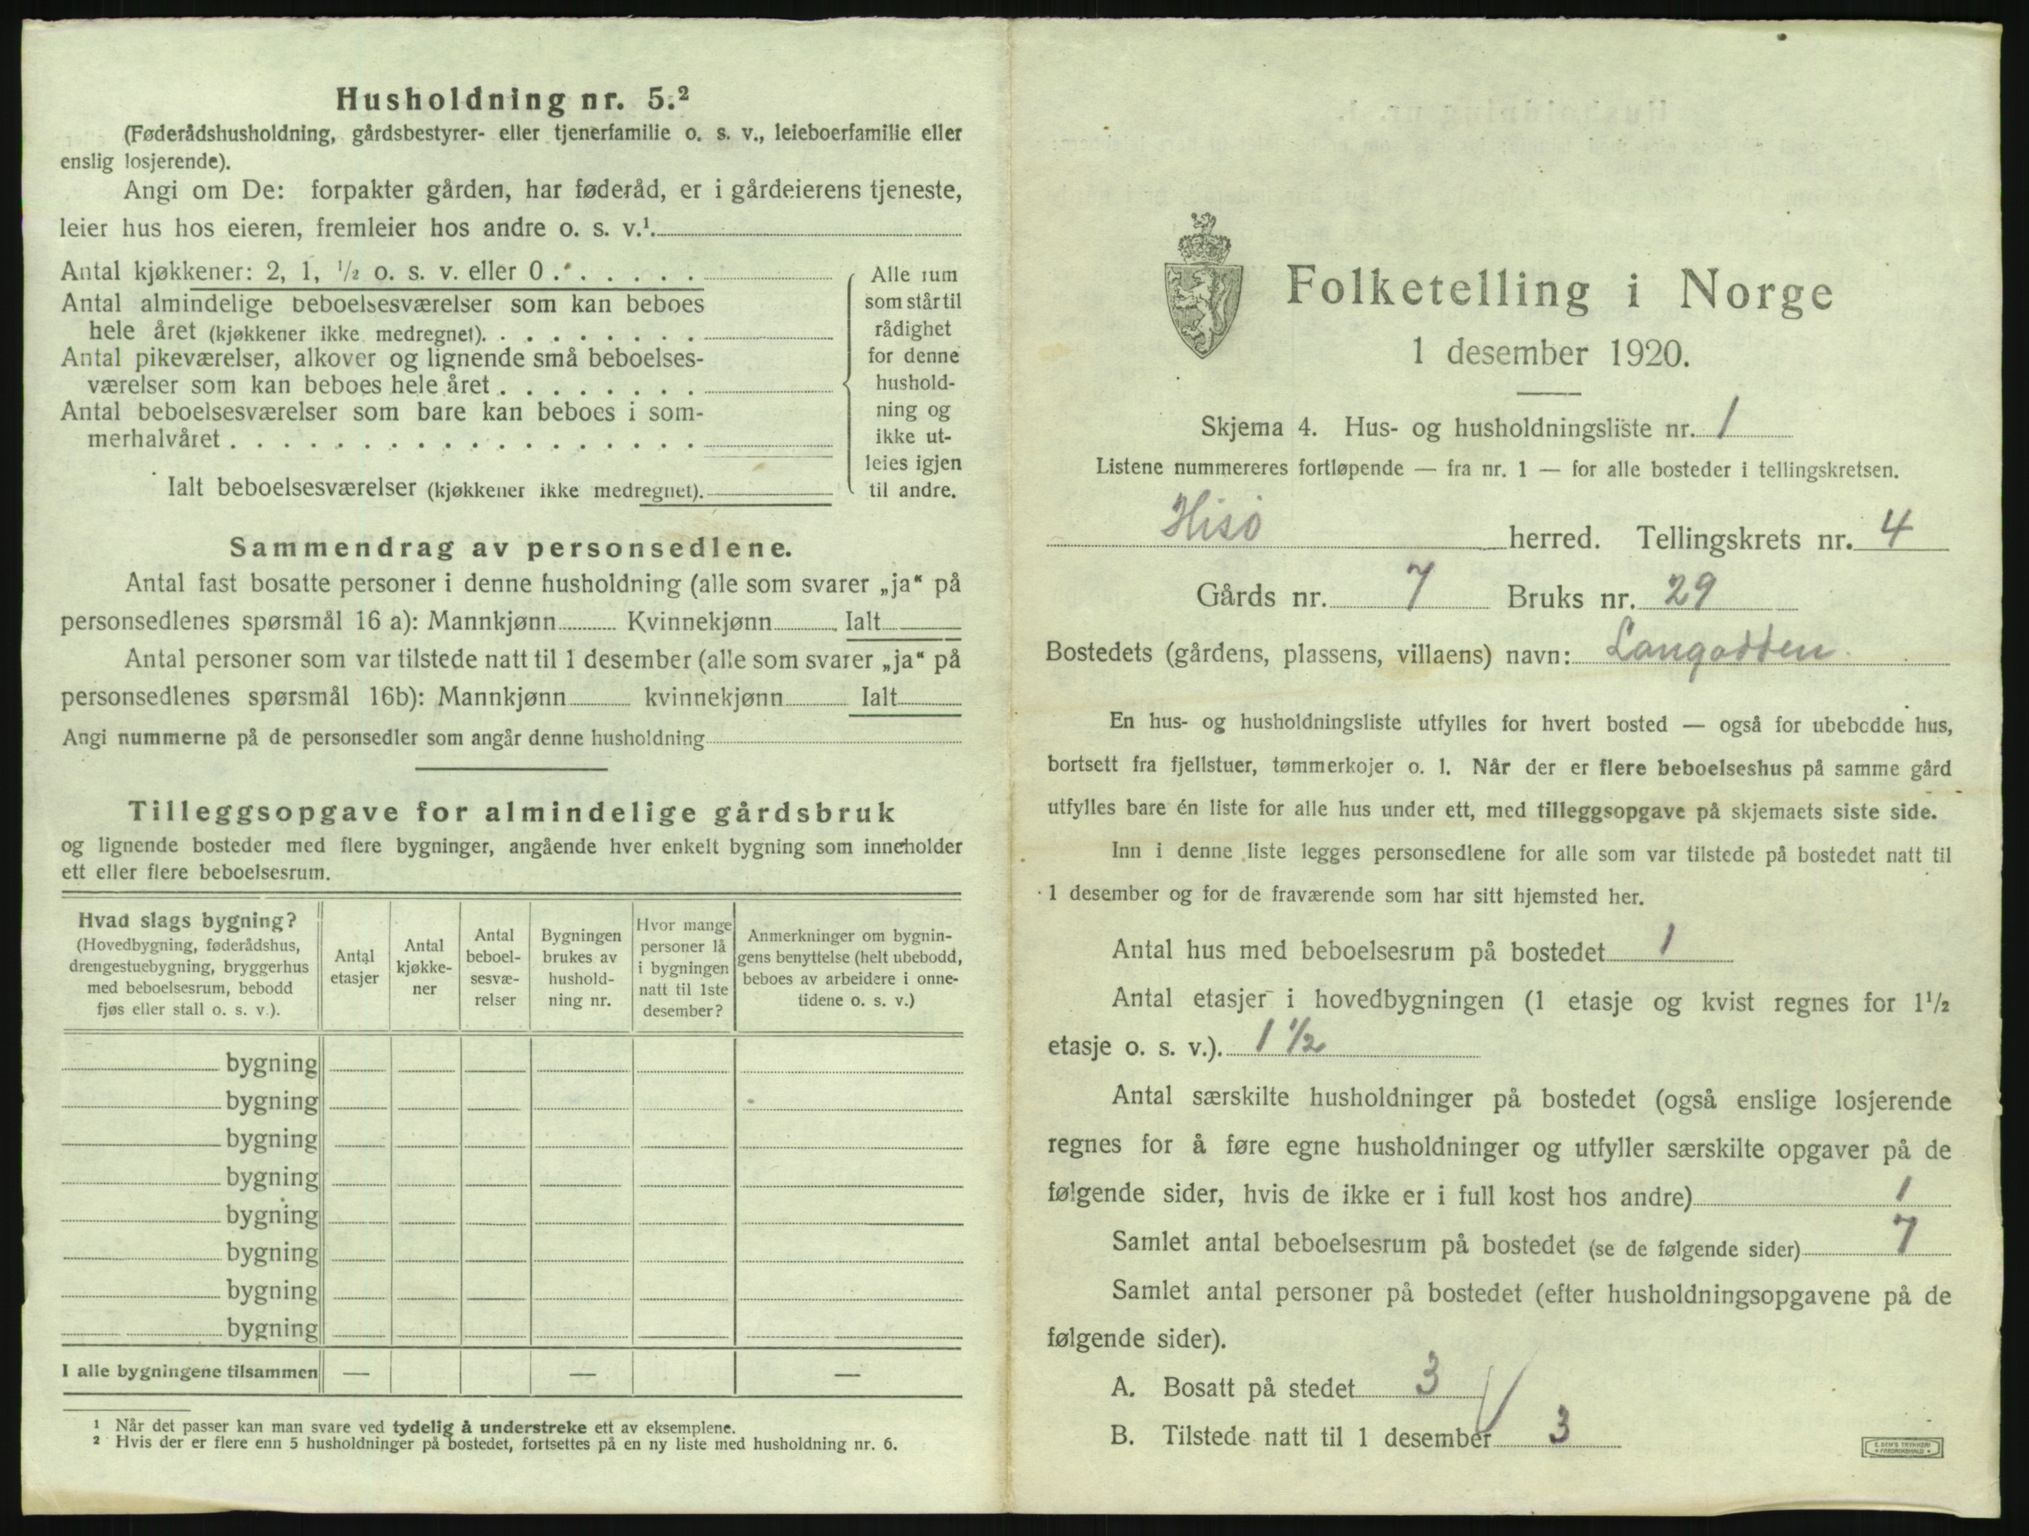 Husholdning nr. 5.²
(Føderådshusholdning, gårdsbestyrer- eller tjenerfamilie o. s. v., leieboerfamilie eller
enslig losjerende).
Angi om De: forpakter gården, har føderåd, er i gårdeierens tjeneste,
leier hus hos eieren, fremleier hos andre o. s. v.¹.
Antal kjøkkener: 2, 1, ½ o. s. v. eller 0 . . . . . .
Antal almindelige beboelsesværelser som kan beboes
hele året (kjøkkener ikke medregnet). . . . . . . . .
Antal pikeværelser, alkover og lignende små beboelses-
værelser som kan beboes hele året . . . . . . . .
Antal beboelsesværelser som bare kan beboes i som-
merhalvåret . . . . . . . . . . . . . . . . . .
Ialt beboelsesværelser (kjøkkener ikke medregnet).
Alle rum
som står til
rådighet
for denne
hushold-
ning og
ikke ut-
leies igjen
til andre.
Sammendrag av personsedlene.
Antal fast bosatte personer i denne husholdning (alle som svarer „ja“ på
personsedlenes spørsmål 16 a): Mannkjønn Kvinnekjønn Ialt
Antal personer som var tilstede natt til 1 desember (alle som svarer „ja“ på
personsedlenes spørsmål 16b): Mannkjønn kvinnekjønn Ialt
Angi nummerne på de personsedler som angår denne husholdning
Tilleggsopgave for almindelige gårdsbruk
og lignende bosteder med flere bygninger, angående hver enkelt bygning som inneholder
ett eller flere beboelsesrum.
Hvad slags bygning?
(Hovedbygning, føderådshus,
drengestuebygning, bryggerhus
med beboelsesrum, bebodd
fjøs eller stall o. s. v.).
Antal
etasjer
Antal
kjøkke-
ner
Antal
beboel-
sesvæ-
relser
Bygningen
brukes av
hushold-
ning nr.
Hvor mange
personer lå
i bygningen
natt til 1ste
desember?
Anmerkninger om bygnin-
gens benyttelse (helt ubebodd,
beboes av arbeidere i onne-
tidene o. s. v.)
bygning
bygning
bygning
bygning
bygning
bygning
bygning
bygning
I alle bygningene tilsammen — — —
¹ Når det passer kan man svare ved tydelig å understreke ett av eksemplene.
² Hvis der er flere enn 5 husholdninger på bostedet, fortsettes på en ny liste med husholdning nr. 6.
Folketelling i Norge
1 desember 1920.
Skjema 4. Hus- og husholdningsliste nr. 1
Listene nummereres fortløpende — fra nr. 1 — for alle bosteder i tellingskretsen.
Hisö herred. Tellingskrets nr. 4
Gårds nr. 7 Bruks nr. 29
Bostedets (gårdens, plassens, villaens) navn: Langodden
En hus- og husholdningsliste utfylles for hvert bosted — også for ubebodde hus,
bortsett fra fjellstuer, tømmerkojer o. l. Når der er flere beboelseshus på samme gård
utfylles bare én liste for alle hus under ett, med tilleggsopgave på skjemaets siste side.
Inn i denne liste legges personsedlene for alle som var tilstede på bostedet natt til
1 desember og for de fraværende som har sitt hjemsted her.
Antal hus med beboelsesrum på bostedet 1
Antal etasjer i hovedbygningen (1 etasje og kvist regnes for 1½
etasje o. s. v.). 1 ½
Antal særskilte husholdninger på bostedet (også enslige losjerende
regnes for å føre egne husholdninger og utfyller særskilte opgaver på de
følgende sider, hvis de ikke er i full kost hos andre) 1
Samlet antal beboelsesrum på bostedet (se de følgende sider) 7
Samlet antal personer på bostedet (efter husholdningsopgavene på de
følgende sider).
A. Bosatt på stedet 3
B. Tilstede natt til 1 desember 3